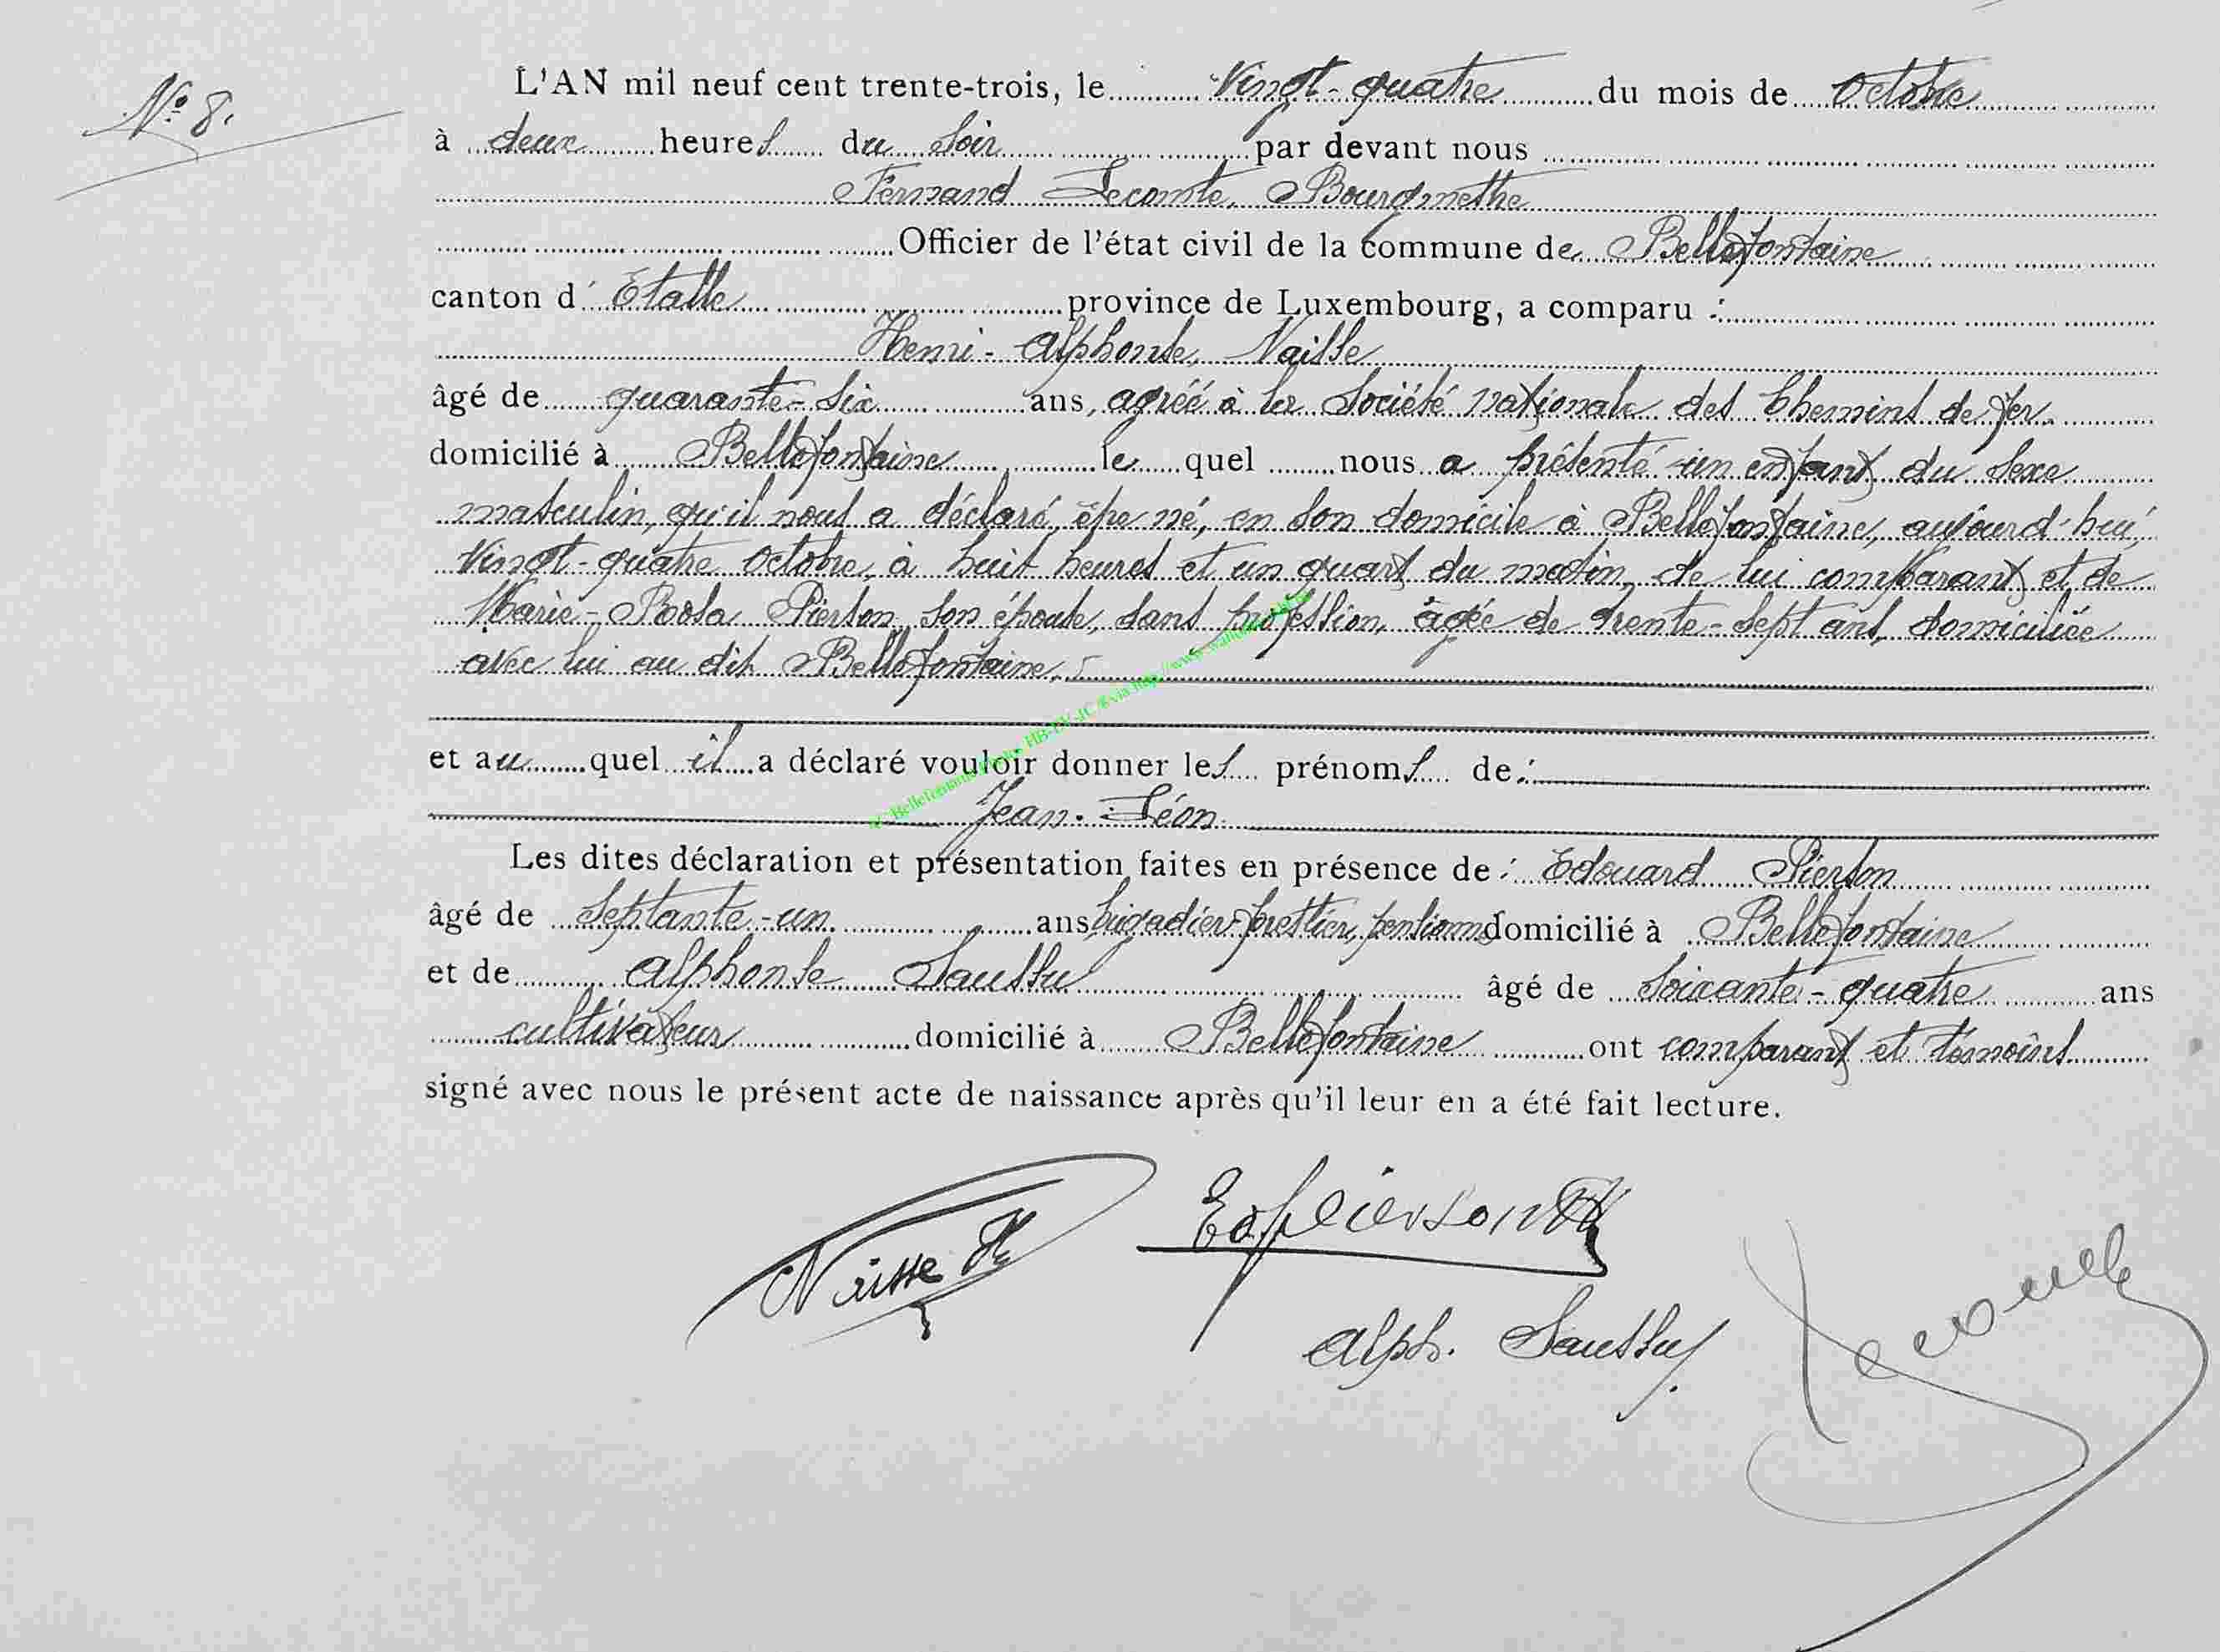 N° 8.
L'AN mil neuf cent trente-trois, le Vingt-quatre du mois de Octobre
à deux heures du soir par devant nous
Fernand Lecomte, Bourgmestre
Officier de l'état civil de la commune de Bellefontaine
canton d' Etalle province de Luxembourg, a comparu :
Henri-Alphonse, Naisse
âgé de quarante-six ans, agréé à la Société nationale des Chemins de fer
domicilié à Bellefontaine le quel nous a présenté un enfant du sexe
masculin, qu'il nous a déclaré, être né, en son domicile à Bellefontaine, aujourd'hui,
Vingt-quatre Octobre, à huit heures et un quart du matin, de lui comparant et de
Marie-Rosa Pierson, son épouse, sans profession, âgée de trente-sept ans, domiciliée
avec lui au dit Bellefontaine,
et au quel il a déclaré vouloir donner les prénoms de :
Jean-Léon
Les dites déclaration et présentation faites en présence de : Edouard Pierson
âgé de septante-un ans brigadier-forestier, pensionné domicilié à Bellefontaine
et de Alphonse Saussu âgé de soixante-quatre ans
cultivateur domicilié à Bellefontaine ont comparant et témoins
signé avec nous le présent acte de naissance après qu'il leur en a été fait lecture.
Naisse H
Ed Pierson
Alph. Saussu
Lecomte